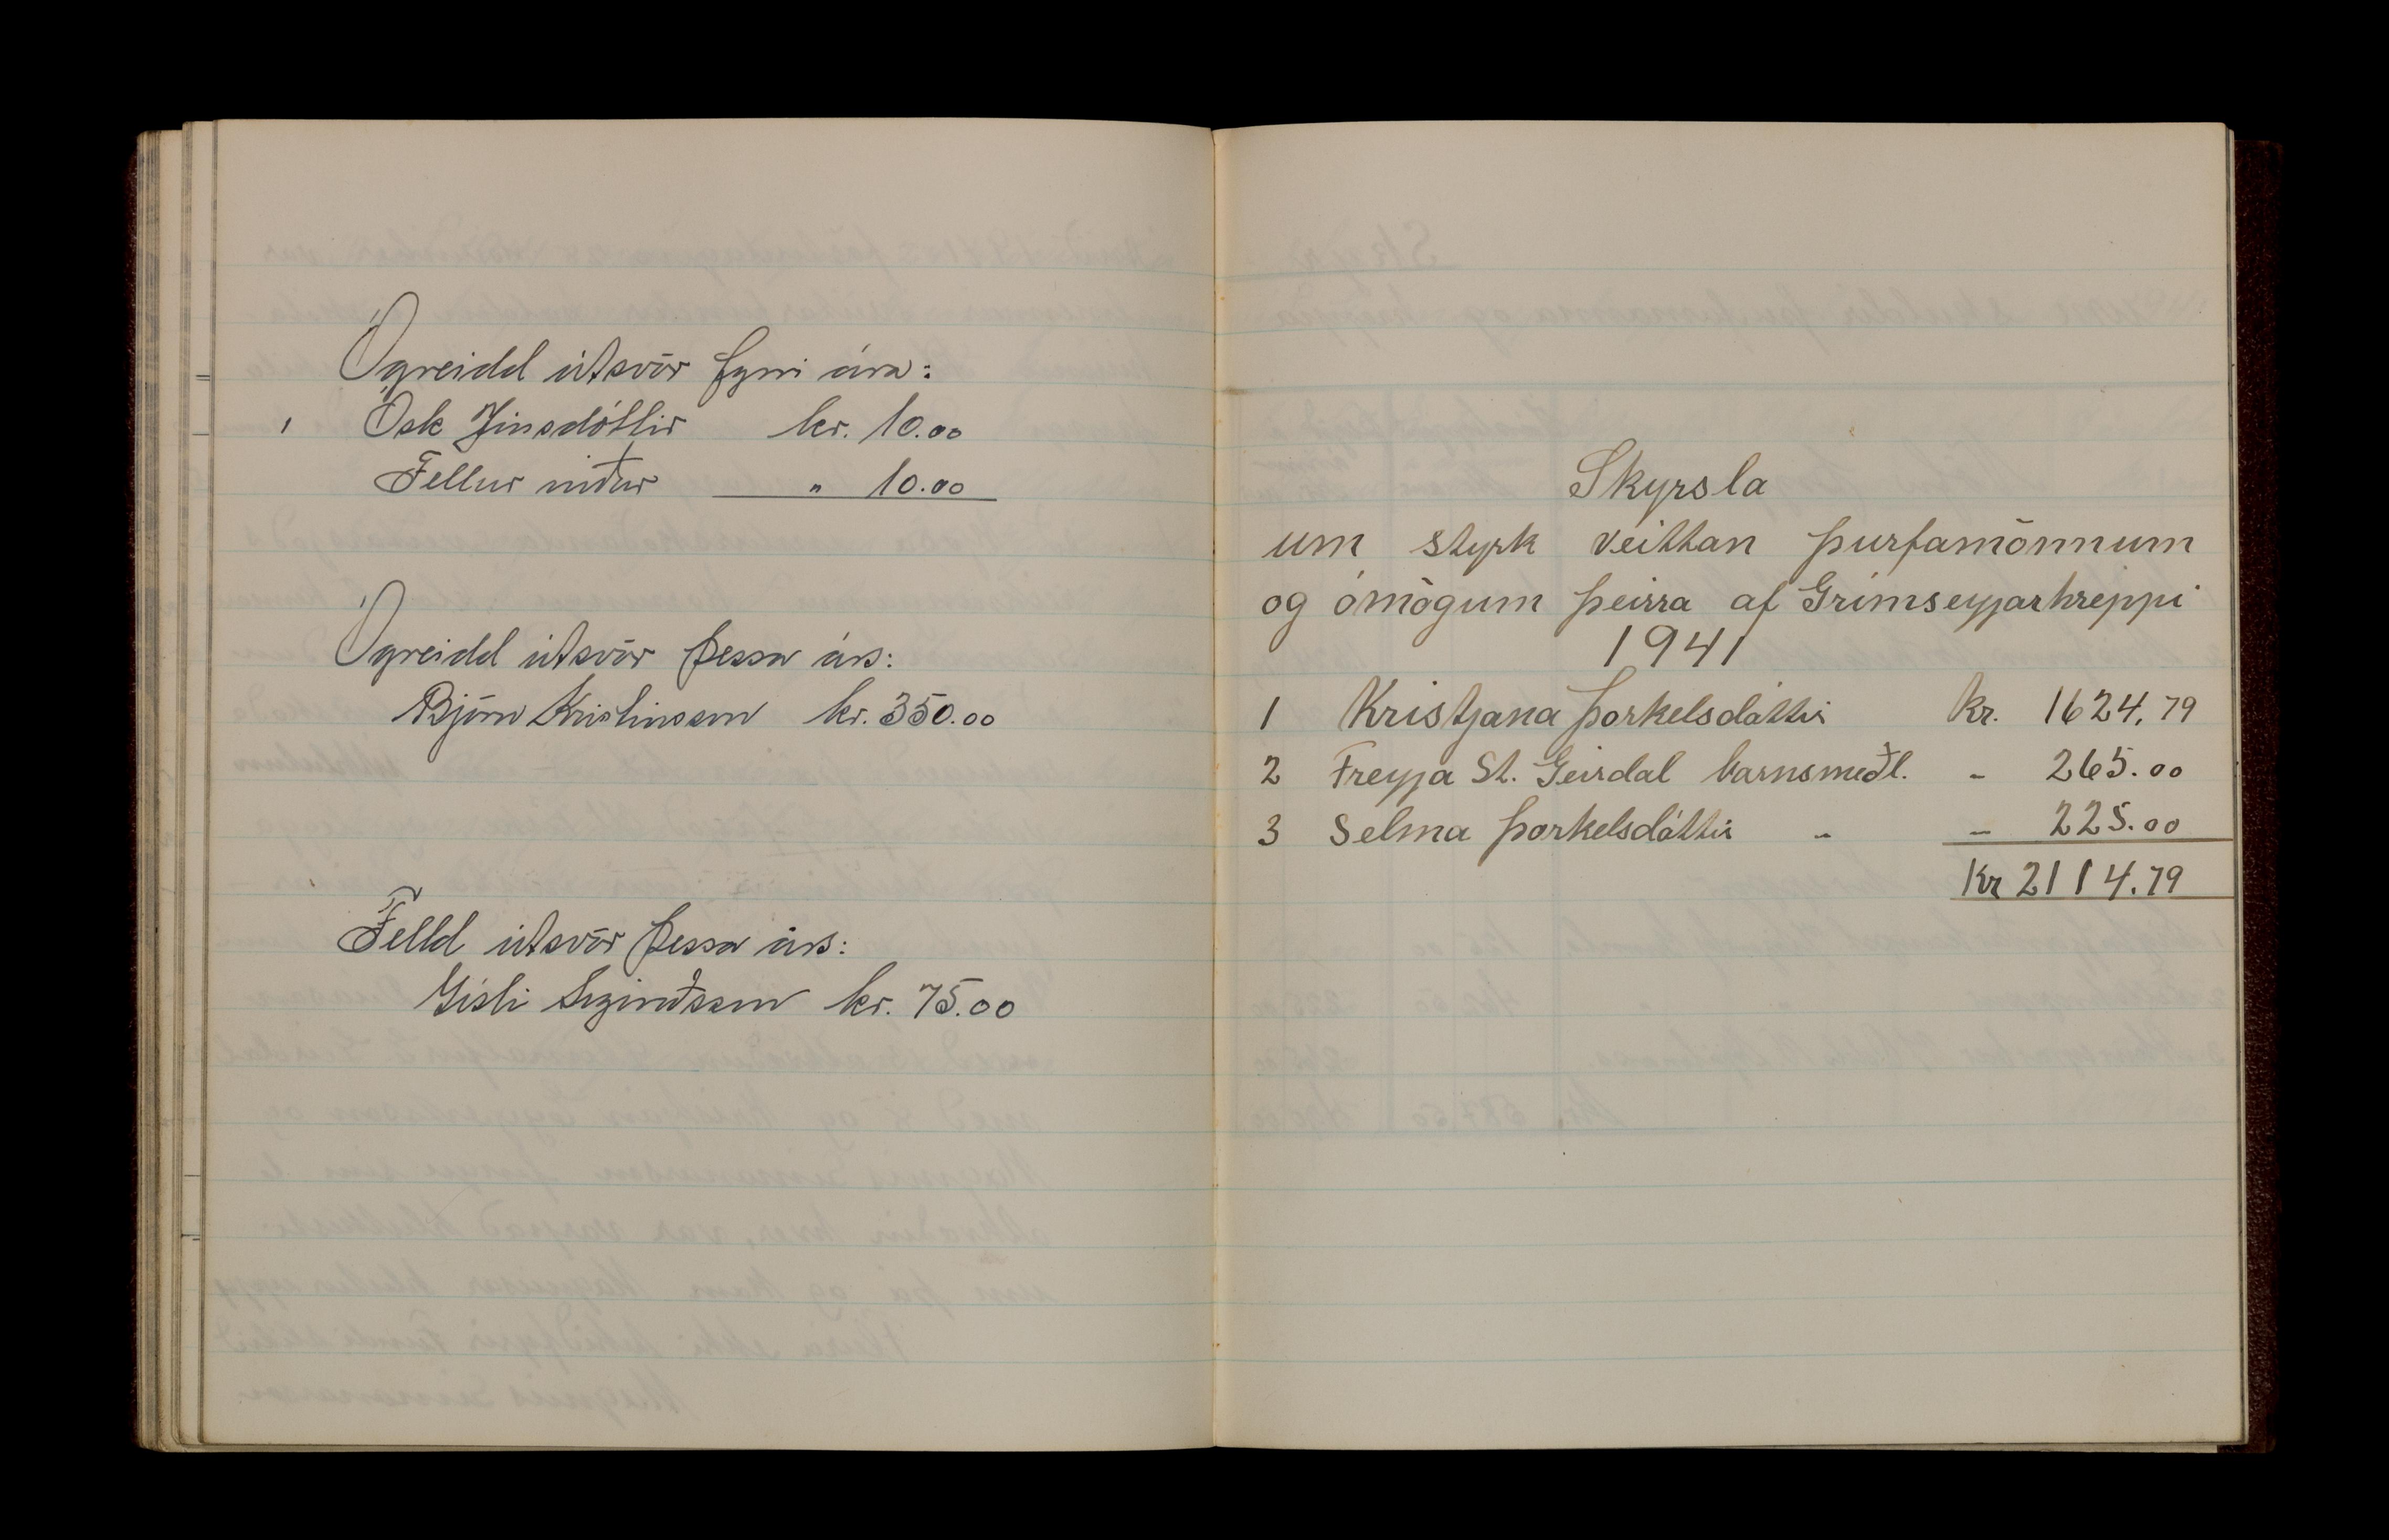 Ógreidd útsvör fyrri ára:
1 Ósk Jónsdóttir kr. 10.00
Fellur niður " 10.00
Ógreidd útsvör þessa árs:
Björn Kristinsson kr. 350.00
Felld útsvör þessa árs:
Gísli kr. 75.00
Skyrsla
um styrk veittan þurfamönnum
og ómögum þeirra af Grímseyjarhreppi
1941
1 Kristjana Þorkelsdóttir Kr. 1624,79
2 Freyja St. Geirdal barnsmeðl. - 265.00
3 Selma Þorkelsdóttir - - 225.00
Kr 2114.79